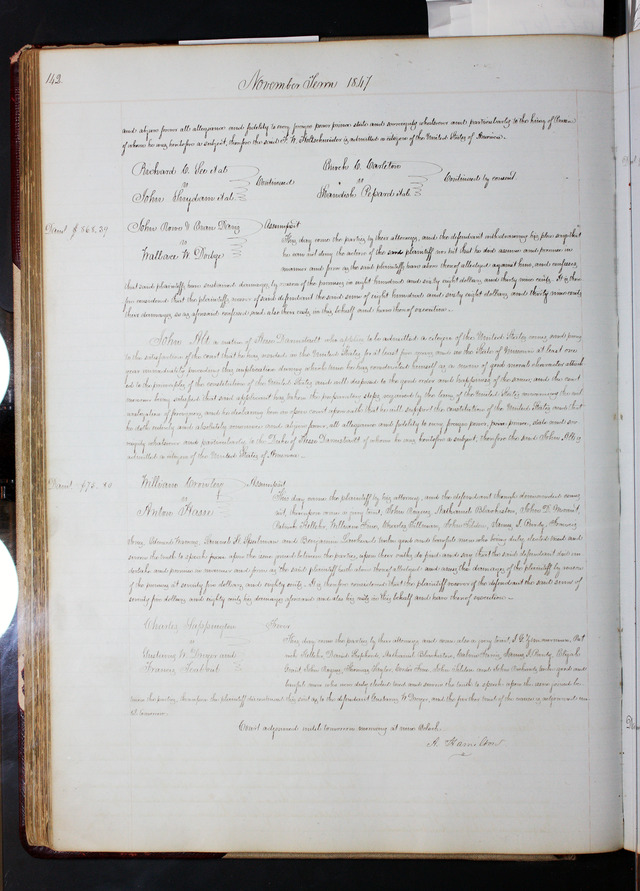 142
November Term 1847
and abjure forever all allegiance and fidelity to every foreign power prince state and sovereignty whatever and particularly to the King of
of whom he was heretofore a subject, therefore the said is admitted a citizen of the United States of America.
Richard C. et al
vs
John et al
Continued
C. Carleton
vs
Standish Pepard et al
Continued by consent
Dam $ 868.39
John Rowe &
vs
Wallace W. Dodge
Assumpsit
This day came the parties by their attorneys, and the defendant withdrawing his plea says that
he can not deny the action of the said plaintiff nor but that he did assume and promise in
manner and form as the said plaintiffs have above thereof alleged against him, and confesses
that said plaintiffs have sustained damages by reason of the premises to eight hundred and sixty eight dollars, and thirty nine cents. It is there
fore considered that the plaintiffs recover of said defendant the said sum of eight hundred and sixty eight dollars and thirty nine cents,
their damages so as aforesaid confessed, and also their costs in this behalf and have thereof execution.
John Alt a native of Hesse Darmstadt who applies to be admitted a citizen of the United States comes and proves
to the satisfaction of the court that he has resided in the United States for at least five years and in the State of Missouri at least one
year immediately preceding this application during which time he has conducted himself as a man of good moral character attach
ed to the principles of the constitution of the United States and well disposed to the good order and happiness of the same, and the court
moreover being satisfied that said applicant has taken the preparatory steps required by the laws of the United States concerning the nat
uralization of foreigners, and he declaring here in open court upon oath that he will support the constitution of the United States and that
he doth entirely and absolutely renounce and abjure forever all allegiance and fidelity to every foreign power, prince, state and sov
ereignty whatever and particularly to the Duke of Hesse Darmstadt of whom he was heretofore a subject; therefore the said John Alt is
admitted a citizen of the United States of America.
Dam $ 75.80
William
vs
Anton
Assumpsit
This day came the plaintiff by his attorney, and the defendant though demanded comes
not, thereupon came a jury to wit, John Nathaniel John D.
Patrick Kelleher William Charles Tillman, John Selden, James S. Francis
Edward and Benjamin twelve good and lawful men who being duly elected tried and
sworn the truth to speak upon the issue joined between the parties, upon their oaths do find and say that the said defendant did un
dertake and promise in manner and form as the said plaintiff hath above thereof alleged and assess the damages of the plaintiff by reason
of the premises at seventy five dollars and eighty cents. It is therefore considered that the plaintiff recover of the defendant the said sum of
seventy five dollars and eighty cents, his damages aforesaid and also his costs in this behalf and have thereof execution.
Charles
vs
Gustavus W. Dreyer and
Francis
This day came the parties by their attorneys and came also a jury to wit, Pat
rick Kelleher David Shepherd, Nathaniel James S. Elijah
John Thomas Taylor, John Selden and John twelve good and
lawful men who were duly elected tried and sworn the truth to speak upon the issue joined be
tween the parties, thereupon the plaintiff discontinued his suit as to the defendant Gustavus W. Dreyer, and the further trial of the cause is adjourned un
til tomorrow.
Court adjourned until tomorrow morning at nine o'clock.
A. Hamilton